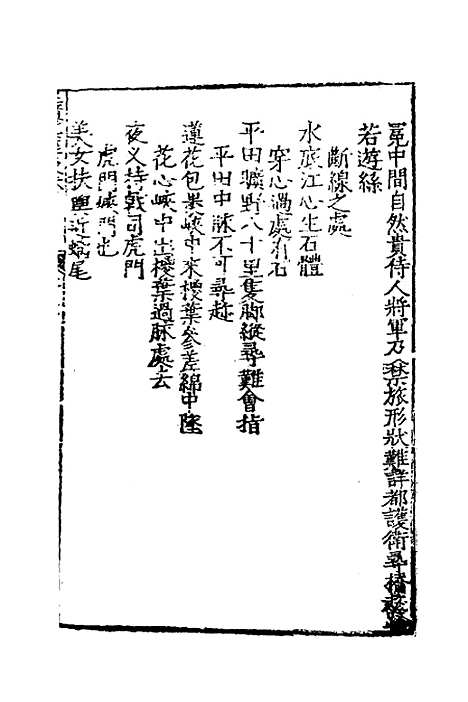 冕中間自然貴侍人將軍乃禁旅形狀難詳都護衛尋橋
若遊絲
斷線之處
水底江心生石體
穿心過處有石
平田曠野八十里隻脚縱尋難會指
平田中脉不可尋趂
蓮花包裹峽中來椶葉參差綿中隆
花心峽中出椶葉過脉處去
夜义持戟司虎門
虎門峽門也
美女扶輿近蟻尾